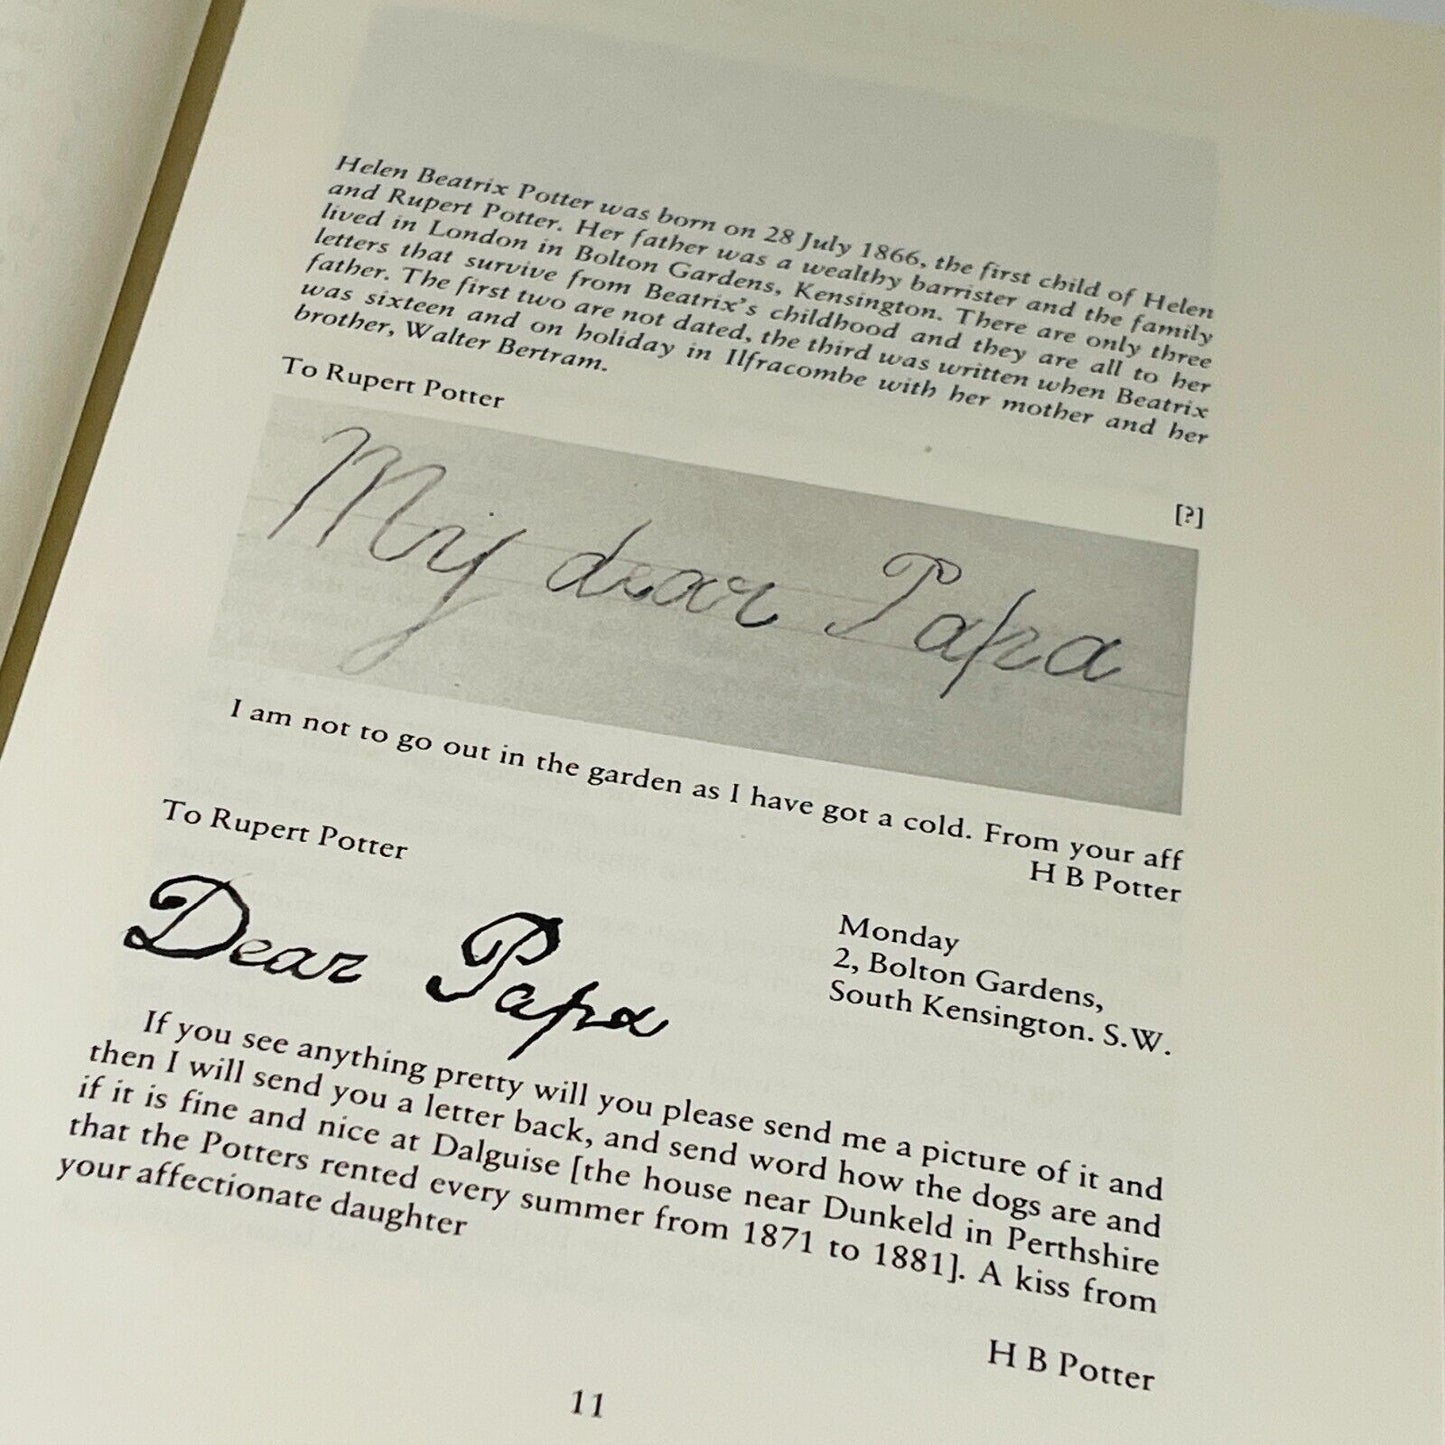 Helen Beatrix Potter was born on 28 July 1866, the first child of Helen
and Rupert Potter. Her father was a wealthy barrister and the family
lived in London in Bolton Gardens, Kensington. There are only three
letters that survive from Beatrix's childhood and they are all to her
father. The first two are not dated, the third was written when Beatrix
was sixteen and on holiday in Ilfracombe with her mother and her
brother, Walter Bertram.
To Rupert Potter
[?]
My dear Papa
I am not to go out in the garden as I have got a cold. From your aff
H B Potter
To Rupert Potter
Monday
2, Bolton Gardens,
South Kensington. S.W.
Dear Papa
If you see anything pretty will you please send me a picture of it and
then I will send you a letter back, and send word how the dogs are and
if it is fine and nice at Dalguise [the house near Dunkeld in Perthshire
that the Potters rented every summer from 1871 to 1881]. A kiss from
your affectionate daughter
H B Potter
11